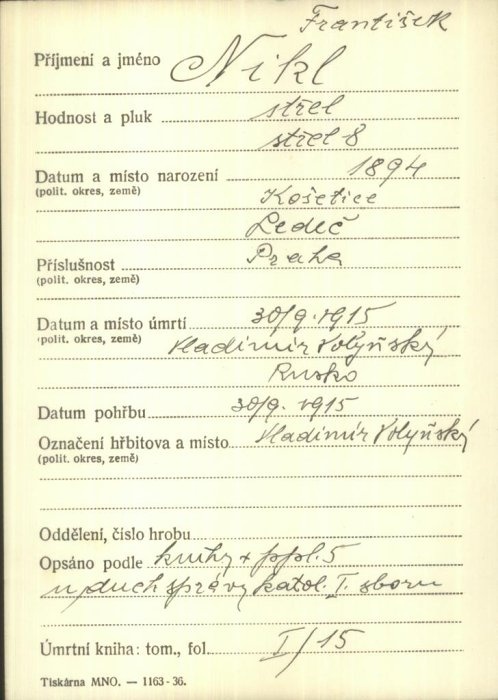 František
Příjmení a jméno Nikl
Hodnost a pluk střel
střel 8
Datum a místo narození 1894
(polit. okres, země) Košetice
Ledeč
Příslušnost Praha
(polit. okres, země)
Datum a místo úmrtí 30/9. 1915
(polit. okres, země) Vladimir Volyňský
Rusko
Datum pohřbu 30/9. 1915
Označení hřbitova a místo Vladimír Volyňský
(polit. okres, země)
Oddělení, číslo hrobu
Opsáno podle knihy + ppl. 5
duch správy katol. I. sboru
Úmrtní kniha: tom., fol. I/15
Tiskárna MNO. — 1163-36.